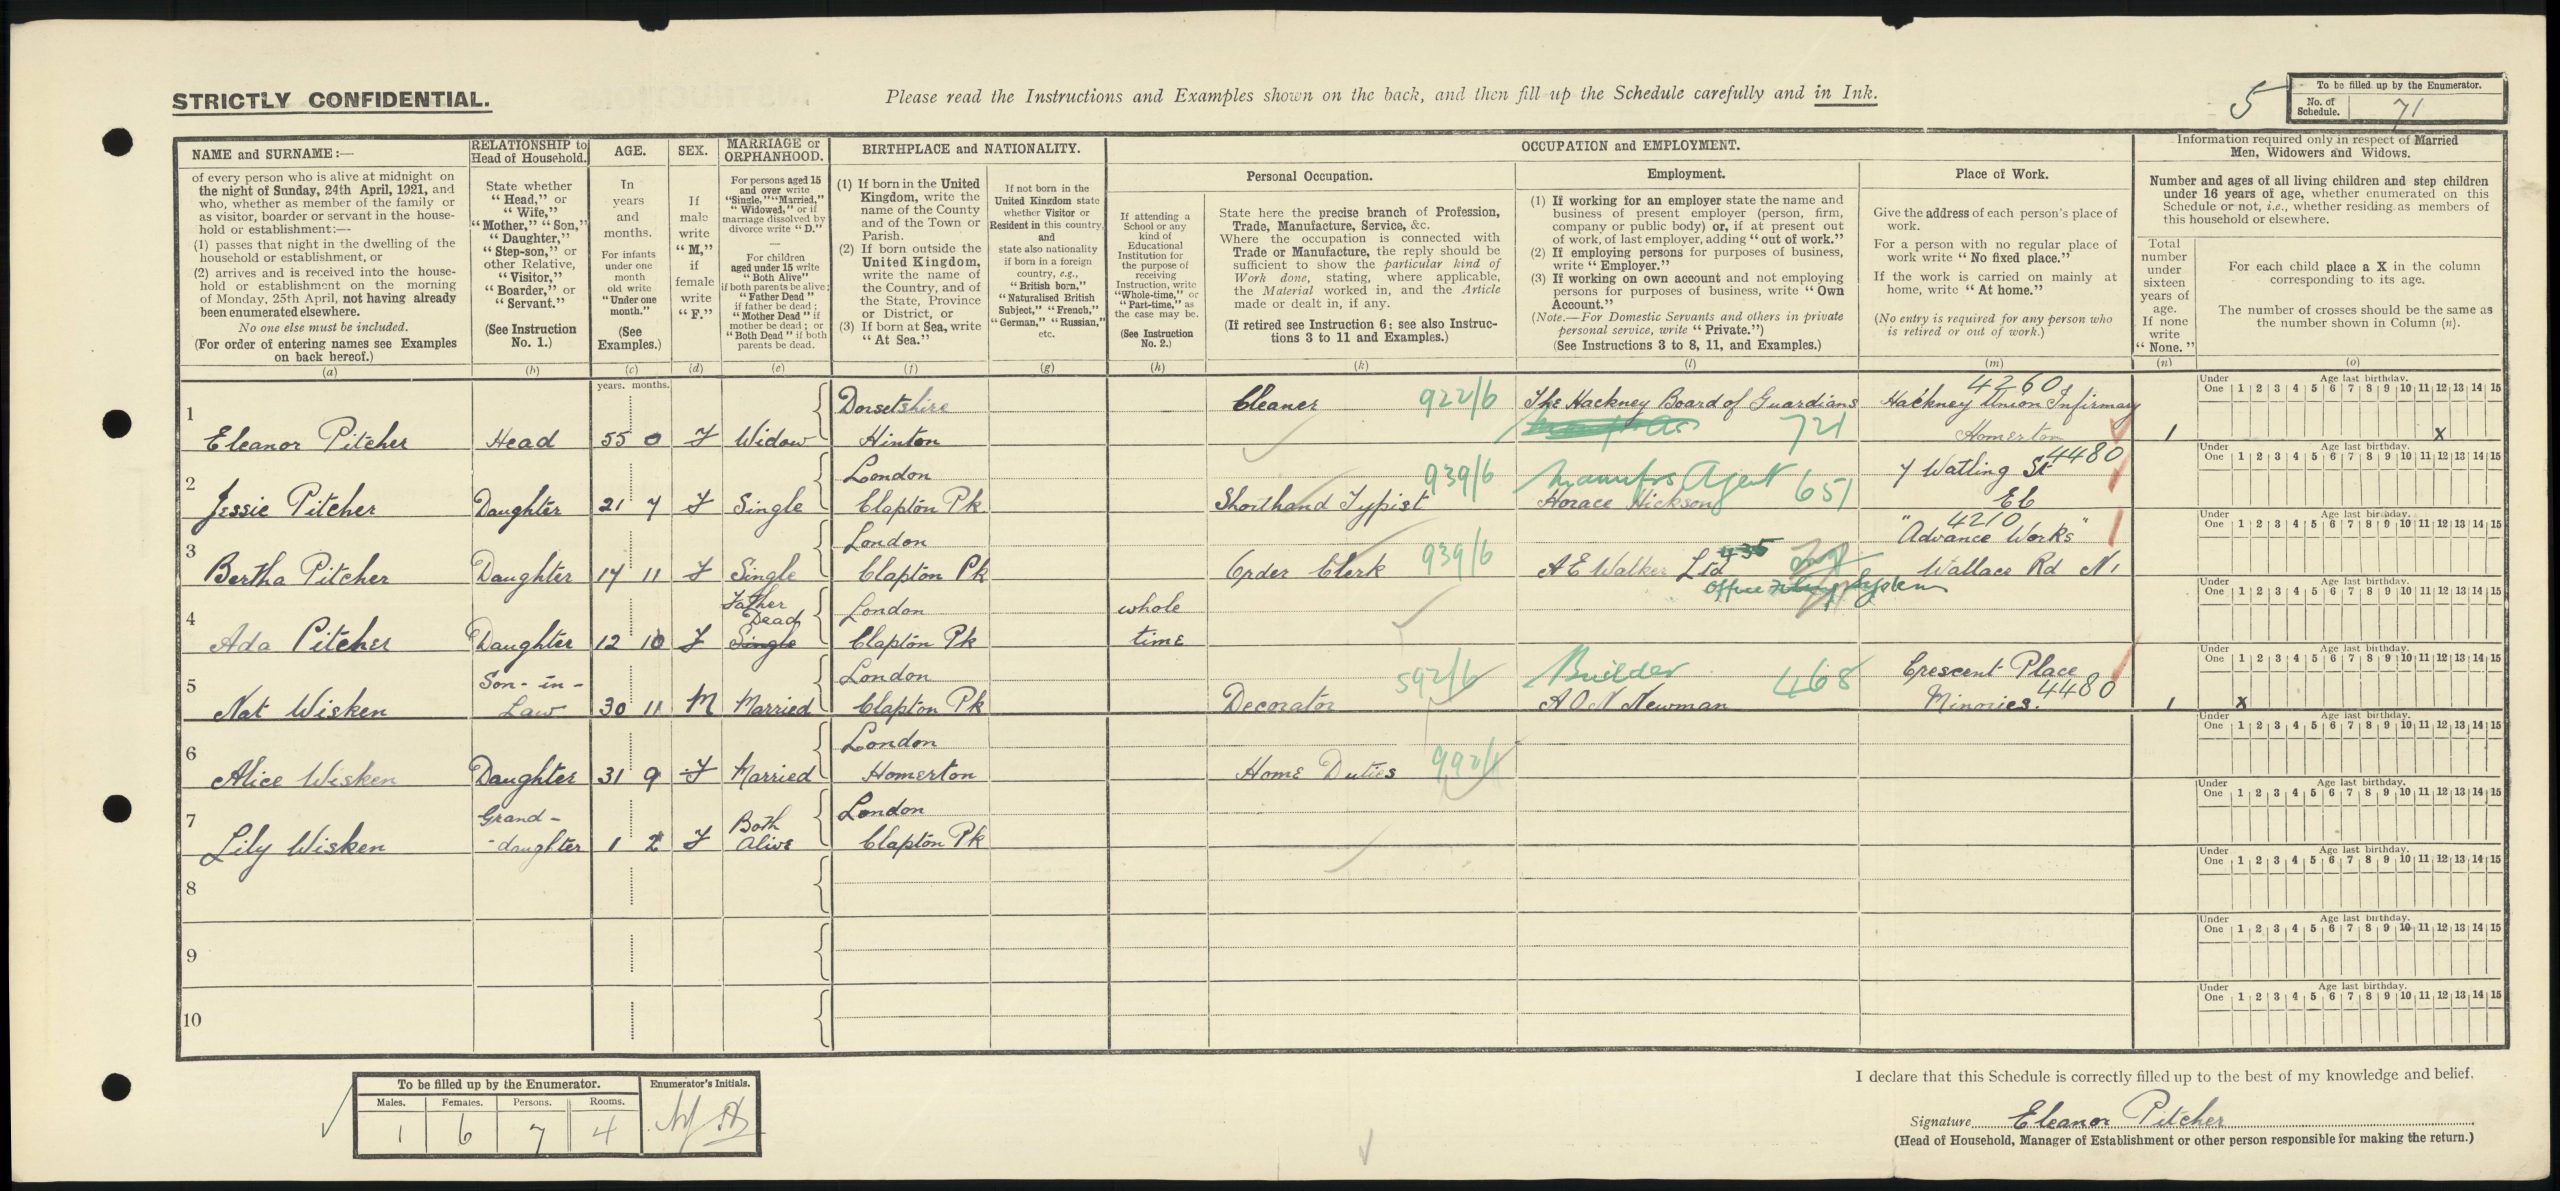 STRICTLY CONFIDENTIAL.
Please read the Instructions and Examples shown on the back, and then fill up the Schedule carefully and in Ink.
5
To be filled up by the Enumerator.
No. of Schedule. 71
NAME and SURNAME:—
of every person who is alive at midnight on
the night of Sunday, 24th April, 1921, and
who, whether as member of the family or
as visitor, boarder or servant in the house-
hold or establishment:—
(1) passes that night in the dwelling of the
household or establishment, or
(2) arrives and is received into the house-
hold or establishment on the morning
of Monday, 25th April, not having already
been enumerated elsewhere.
No one else must be included.
(For order of entering names see Examples
on back hereof.)
(a)
RELATIONSHIP to
Head of Household.
State whether
"Head," or
"Wife,"
"Mother," "Son,"
"Daughter,"
"Step-son," or
other Relative,
"Visitor,"
"Boarder," or
"Servant."
(See Instruction
No. 1.)
(b)
AGE.
In
years
and
months.
For infants
under one
month
old write
"Under one
month."
(See
Examples.)
(c)
SEX.
If
male
write
"M,"
if
female
write
"F."
(d)
MARRIAGE or
ORPHANHOOD.
For persons aged 15
and over write
"Single," "Married,"
"Widowed," or if
marriage dissolved by
divorce write "D."
For children
aged under 15 write
"Both Alive"
if both parents be alive;
"Father Dead"
if father be dead;
"Mother Dead" if
mother be dead; or
"Both Dead" if both
parents be dead.
(e)
BIRTHPLACE and NATIONALITY.
(1) If born in the United
Kingdom, write the
name of the County
and of the Town or
Parish.
(2) If born outside the
United Kingdom,
write the name of
the Country, and of
the State, Province
or District, or
(3) If born at Sea, write
"At Sea."
(f)
If not born in the
United Kingdom state
whether Visitor or
Resident in this country,
and
state also nationality
if born in a foreign
country, e.g.,
"British born,"
"Naturalised British
Subject," "French,"
"German," "Russian,"
etc.
(g)
OCCUPATION and EMPLOYMENT.
If attending a
School or any
kind of
Educational
Institution for
the purpose of
receiving
Instruction, write
"Whole-time," or
"Part-time," as
the case may be.
(See Instruction
No. 2.)
(h)
Personal Occupation.
State here the precise branch of Profession,
Trade, Manufacture, Service, &c.
Where the occupation is connected with
Trade or Manufacture, the reply should be
sufficient to show the particular kind of
Work done, stating, where applicable,
the Material worked in, and the Article
made or dealt in, if any.
(If retired see Instruction 6; see also Instruc-
tions 3 to 11 and Examples.)
(k)
Employment.
(1) If working for an employer state the name and
business of present employer (person, firm,
company or public body) or, if at present out
of work, of last employer, adding "out of work."
(2) If employing persons for purposes of business,
write "Employer."
(3) If working on own account and not employing
persons for purposes of business, write "Own
Account."
(Note.—For Domestic Servants and others in private
personal service, write "Private.")
(See Instructions 3 to 8, 11, and Examples.)
(l)
Place of Work.
Give the address of each person's place of
work.
For a person with no regular place of
work write "No fixed place."
If the work is carried on mainly at
home, write "At home."
(No entry is required for any person who
is retired or out of work.)
(m)
Information required only in respect of Married
Men, Widowers and Widows.
Number and ages of all living children and step children
under 16 years of age, whether enumerated on this
Schedule or not, i.e., whether residing as members of
this household or elsewhere.
Total
number
under
sixteen
years of
age.
If none
write
"None."
(n)
For each child place a X in the column
corresponding to its age.
The number of crosses should be the same as
the number shown in Column (n).
(o)
years. months.
1 Eleanor Pitcher Head 55 0 F Widow Dorsetshire Hinton Cleaner 922/6 The Hackney Board of Guardians 721 4260 Hackney Union Infirmary Homerton 1 X
Under One Age last birthday. 1 2 3 4 5 6 7 8 9 10 11 12 13 14 15
2 Jessie Pitcher Daughter 21 7 F Single London Clapton Pk Shorthand Typist 939/6 Manufrs Agent 651 Horace Hickson 7 Watling St 4480 EC
Under One Age last birthday. 1 2 3 4 5 6 7 8 9 10 11 12 13 14 15
3 Bertha Pitcher Daughter 17 11 F Single London Clapton Pk Order Clerk 939/6 A E Walker Ltd Office Filing System 4210 "Advance Works" Wallace Rd N1
Under One Age last birthday. 1 2 3 4 5 6 7 8 9 10 11 12 13 14 15
4 Ada Pitcher Daughter 12 10 F Father Dead Single London Clapton Pk whole time
Under One Age last birthday. 1 2 3 4 5 6 7 8 9 10 11 12 13 14 15
5 Nat Wisken Son-in-Law 30 11 M Married London Clapton Pk Decorator 592/6 Builder 468 A O N Newman Crescent Place Minories. 4480 1 X
Under One Age last birthday. 1 2 3 4 5 6 7 8 9 10 11 12 13 14 15
6 Alice Wisken Daughter 31 9 F Married London Homerton Home Duties
Under One Age last birthday. 1 2 3 4 5 6 7 8 9 10 11 12 13 14 15
7 Lily Wisken Grand-daughter 1 2 F Both Alive London Clapton Pk
Under One Age last birthday. 1 2 3 4 5 6 7 8 9 10 11 12 13 14 15
8
Under One Age last birthday. 1 2 3 4 5 6 7 8 9 10 11 12 13 14 15
9
Under One Age last birthday. 1 2 3 4 5 6 7 8 9 10 11 12 13 14 15
10
Under One Age last birthday. 1 2 3 4 5 6 7 8 9 10 11 12 13 14 15
To be filled up by the Enumerator. Enumerator's Initials.
Males. Females. Persons. Rooms.
1 6 7 4
I declare that this Schedule is correctly filled up to the best of my knowledge and belief.
Signature Eleanor Pitcher
(Head of Household, Manager of Establishment or other person responsible for making the return.)